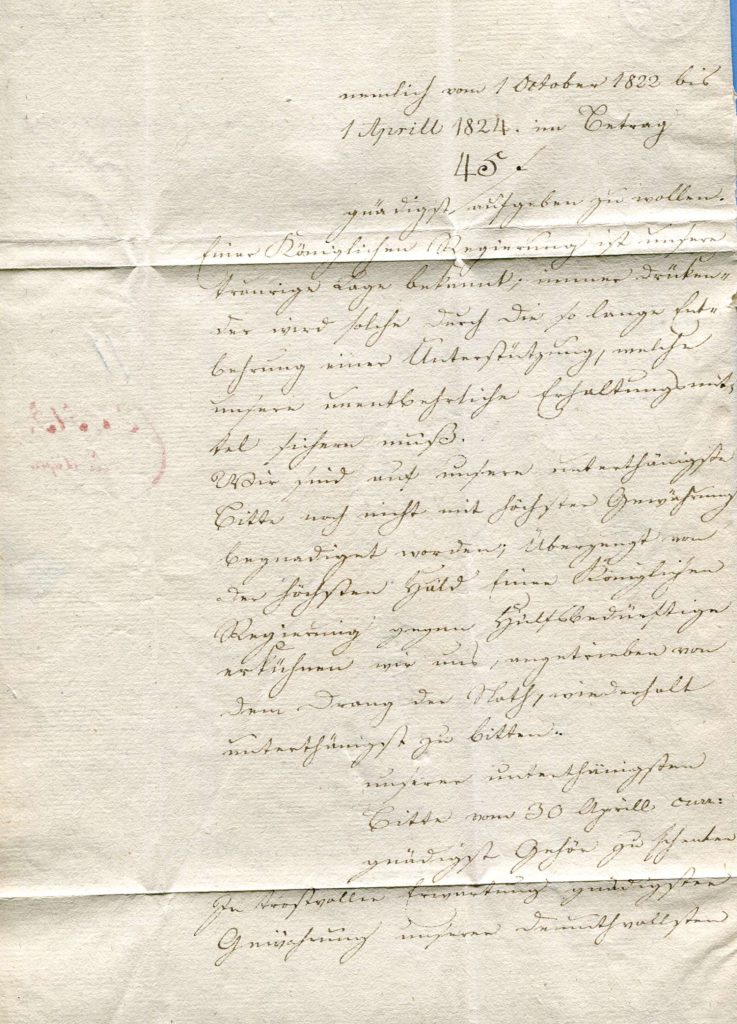 nemlich vom 1 October 1822 bis
1 Aprill 1824. im Betrag
45 f
gnädigst aufgeben zu wollen.
Einer Königlichen Regierung ist unsere
traurige Lage bekannt, immer drüken-
der wird solche durch die so lange Ent-
behrung einer Unterstützung, welche
unsere unentbehrliche Erhaltungsmit-
tel sichern muß.
Wir sind auf unsere unterthänigste
Bitte noch nicht mit höchster Gewährung
begnadiget worden; Überzeugt von
der höchsten Huld Einer Königlichen
Regierung gegen Hülfsbedürftige
erkühnen wir uns, angetrieben von
dem Drang der Noth, wiederholt
unterthänigst zu bitten:
unserer unterthänigsten
Bitte vom 30 Aprill curr:
gnädigst Gehör zu schenken
In trostvoller Erwartung gnädigster
Gewährung unserer demuthvollsten